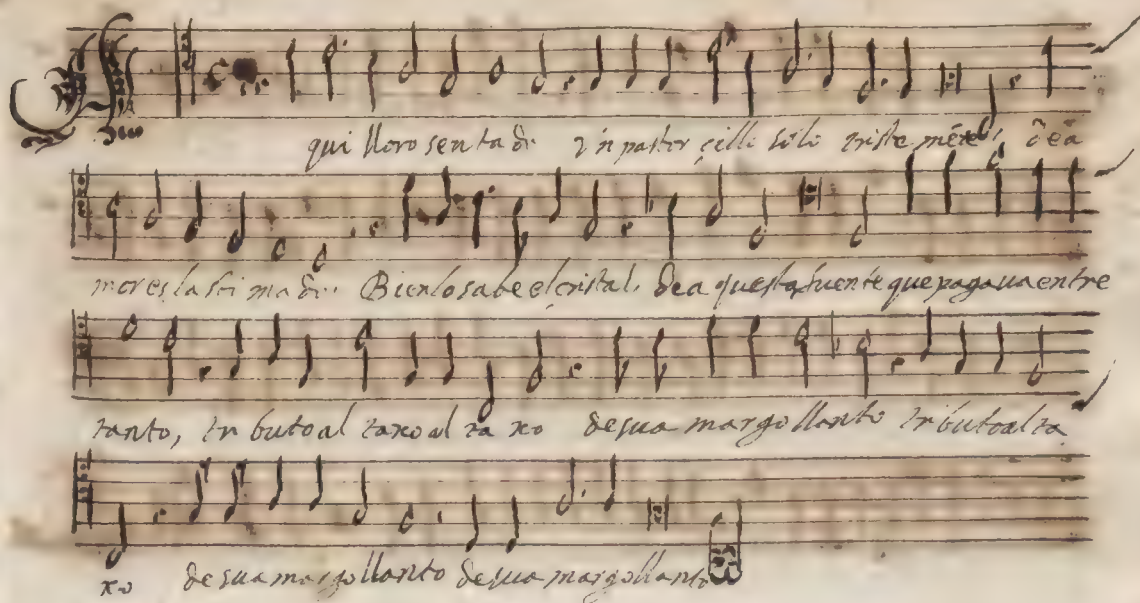 A qui lloro sen ta do vn pastor çillo solo triste mēte dēā
mores las ti ma do. Bien lo sa be el cristal. de a questa fuente que pagaua entre
tanto, tri buto al taxo al ta xo de su a margo llanto tributo al ta
xo de su a margo llanto de su a margo llanto